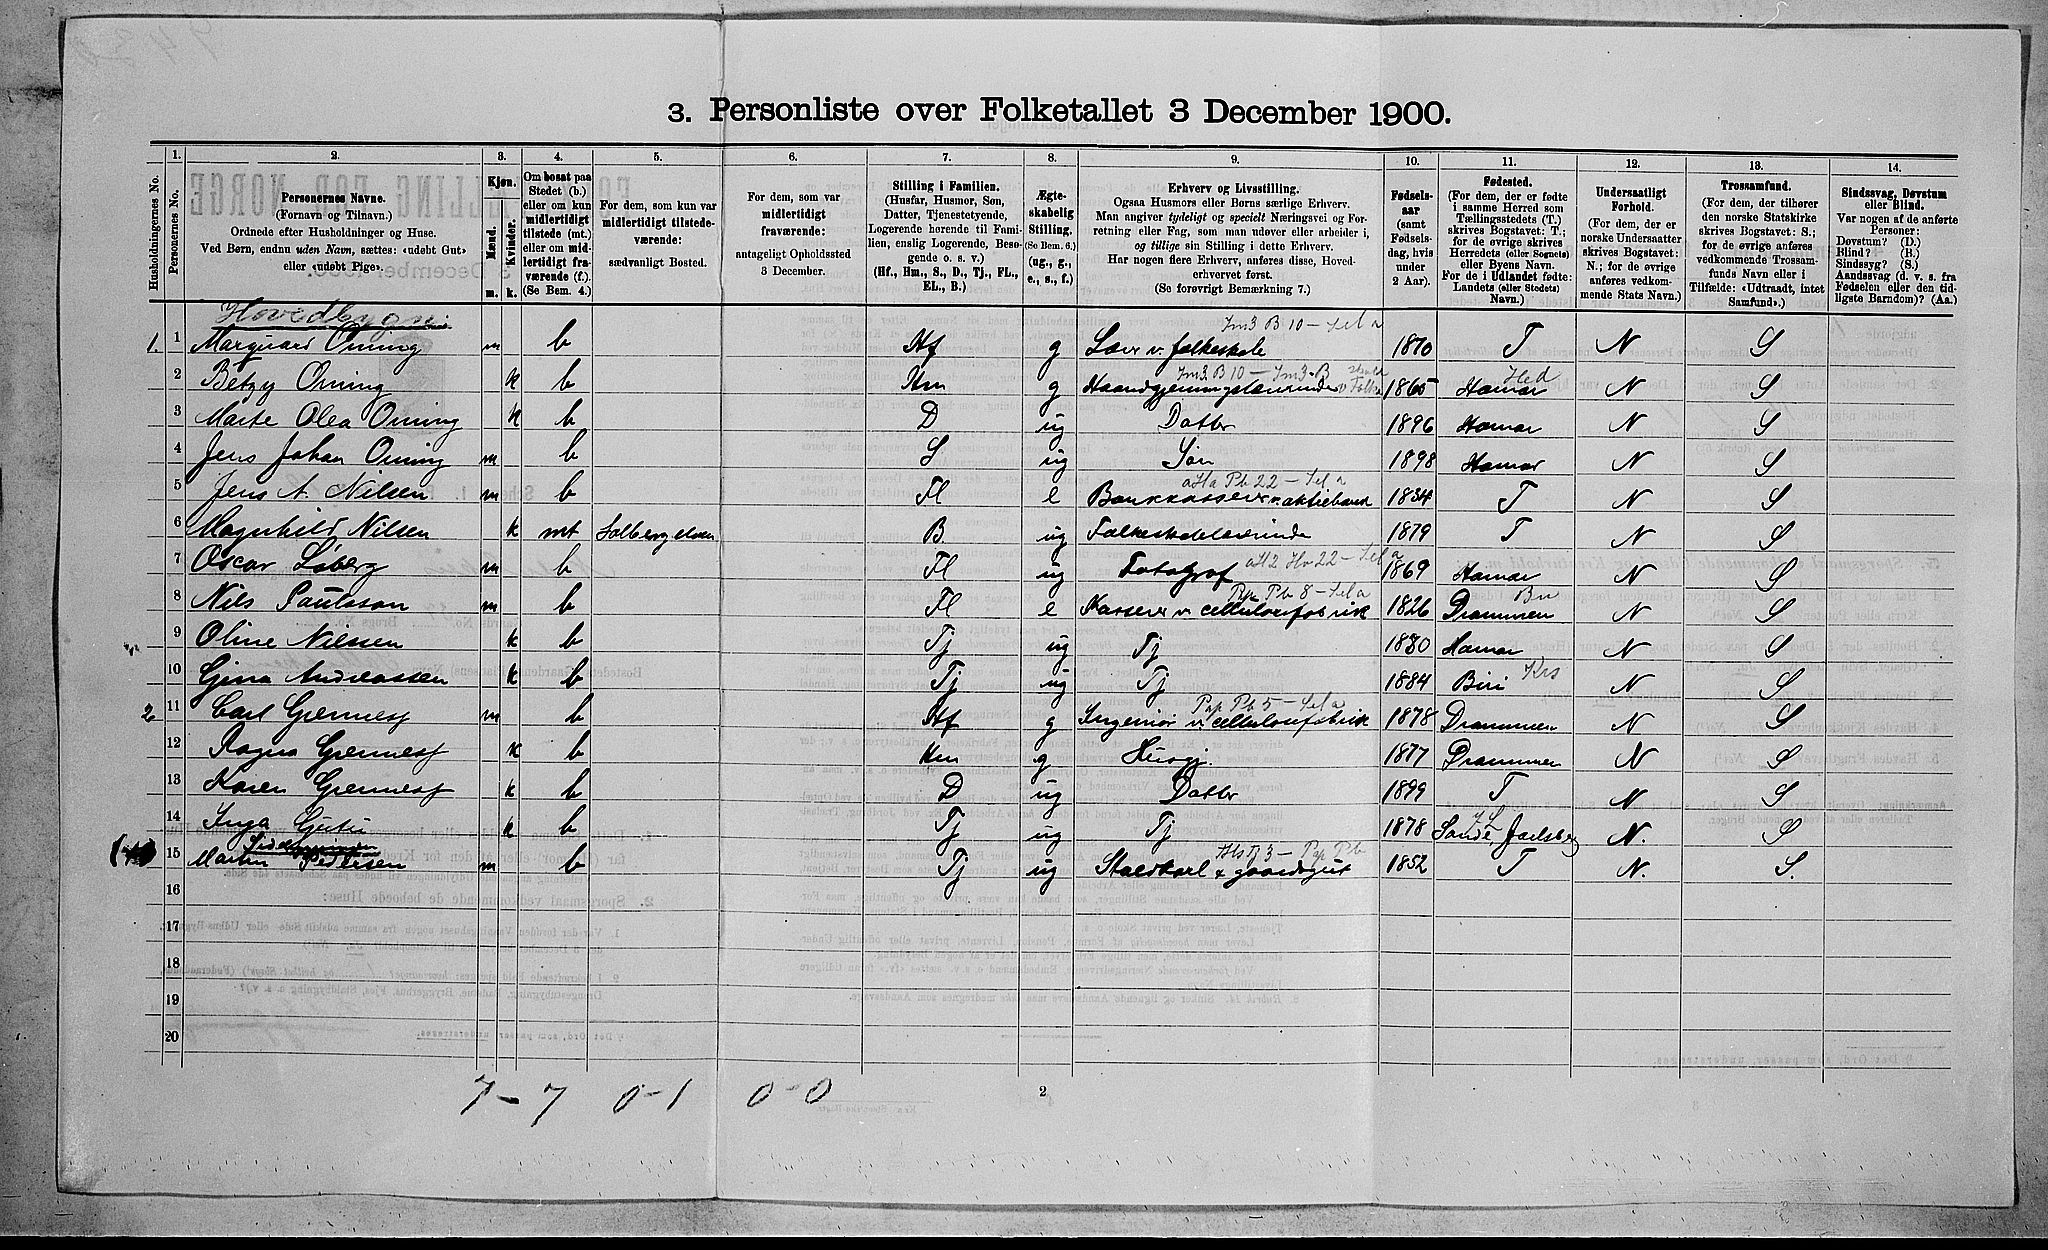 3. Personliste over Folketallet 3 December 1900.
Husholdningernes No.
1.
Personernes No.
2.
Personernes Navne.
(Fornavn og Tilnavn.)
Ordnede efter Husholdninger og Huse.
Ved Børn, endnu uden Navn, sættes: «udøbt Gut»
eller «udøbt Pige».
3.
Kjøn.
Mænd.
Kvinder.
m.
k.
4.
Om bosat paa
Stedet (b.)
eller om kun
midlertidigt
tilstede (mt.)
eller om mid-
lertidigt fra-
værende (f.)
(Se Bem. 4.)
5.
For dem, som kun var
midlertidigt tilstede-
værende:
sædvanligt Bosted.
6.
For dem, som var
midlertidigt
fraværende:
antageligt Opholdssted
3 December.
7.
Stilling i Familien.
(Husfar, Husmor, Søn,
Datter, Tjenestetyende,
Logerende hørende til Fami-
lien, enslig Logerende, Besø-
gende o. s. v.)
(Hf., Hm., S., D., Tj., FL.,
EL., B.)
8.
Ægte-
skabelig
Stilling.
(Se Bem. 6.)
(ug., g.,
e., s., f.)
9.
Erhverv og Livsstilling.
Ogsaa Husmors eller Børns særlige Erhverv.
Man angiver tydeligt og specielt Næringsvei og For-
retning eller Fag, som man udøver eller arbeider i,
og tillige sin Stilling i dette Erhverv.
Har nogen flere Erhverv, anføres disse, Hoved-
erhvervet først.
(Se forøvrigt Bemærkning 7.)
10.
Fødsels-
aar
(samt
Fødsels-
dag, hvis
under
2 Aar).
11.
Fødested.
(For dem, der er fødte
i samme Herred som
Tællingsstedets (T.)
skrives Bogstavet: T.;
for de øvrige skrives
Herredets (eller Sognets)
eller Byens Navn.
For de i Udlandet fødte:
Landets (eller Stedets)
Navn.)
12.
Undersaatligt
Forhold.
(For dem, der er
norske Undersaatter
skrives Bogstavet:
N.; for de øvrige
anføres vedkom-
mende Stats Navn.)
13.
Trossamfund.
(For dem, der tilhører
den norske Statskirke
skrives Bogstavet: S.;
for de øvrige anføres
vedkommende Trossam-
funds Navn eller i
Tilfælde: «Udtraadt, intet
Samfund».)
14.
Sindssvag, Døvstum
eller Blind.
Var nogen af de anførte
Personer:
Døvstum? (D.)
Blind? (B.)
Sindssyg? (S.)
Aandssvag (d. v. s. fra
Fødselen eller den tid-
ligste Barndom)? (Aa.)
Hovedbygn
1. 1 Marquard Orning m b Hf g Lærer v. folkeskole 1870 T N S
2 Betzy Orning k b Hm g Haandgjerningslærerinde v Folkes 1865 Hamar Hed N S
3 Marte Olea Orning k b D ug Datter 1896 Hamar N S
4 Jens Johan Orning m b S ug Søn 1898 Hamar N S
5 Jens A. Nilsen m b Fl e Bankkasserer v. aktiebank 1834 T N S
6 Magnhild Nilsen k mt Solbergelven B. ug Folkeskolelærerinde 1879 T N S
7 Oscar Løberg m b Fl ug Fotograf 1869 Hamar N S
8 Nils Paulsson m b Fl e Kasserer v. cellulosefabrik 1826 Drammen Bu N S
9 Oline Nilssen k b Tj ug Tj 1880 Hamar N S
10 Gina Andreassen k b Tj ug Tj 1884 Biri Krs N S
2 11 Carl Grenness m b Hf g Ingeniør v. cellulosefabrik 1878 Drammen N S
12 Ragna Grenness k b Hm g Husgj. 1877 Drammen N S
13 Karen Grenness k b D ug Datter 1899 T N S
14 Inga Gjutu k b Tj ug Tj 1878 Sande, Jarlsberg N. S
Sidebygning
15 Martin Pedersen m b Tj ug Staldkarl & gaardsgut 1852 T N. S.
16
17
18
19
20
7 - 7 0 - 1 0 - 0
2